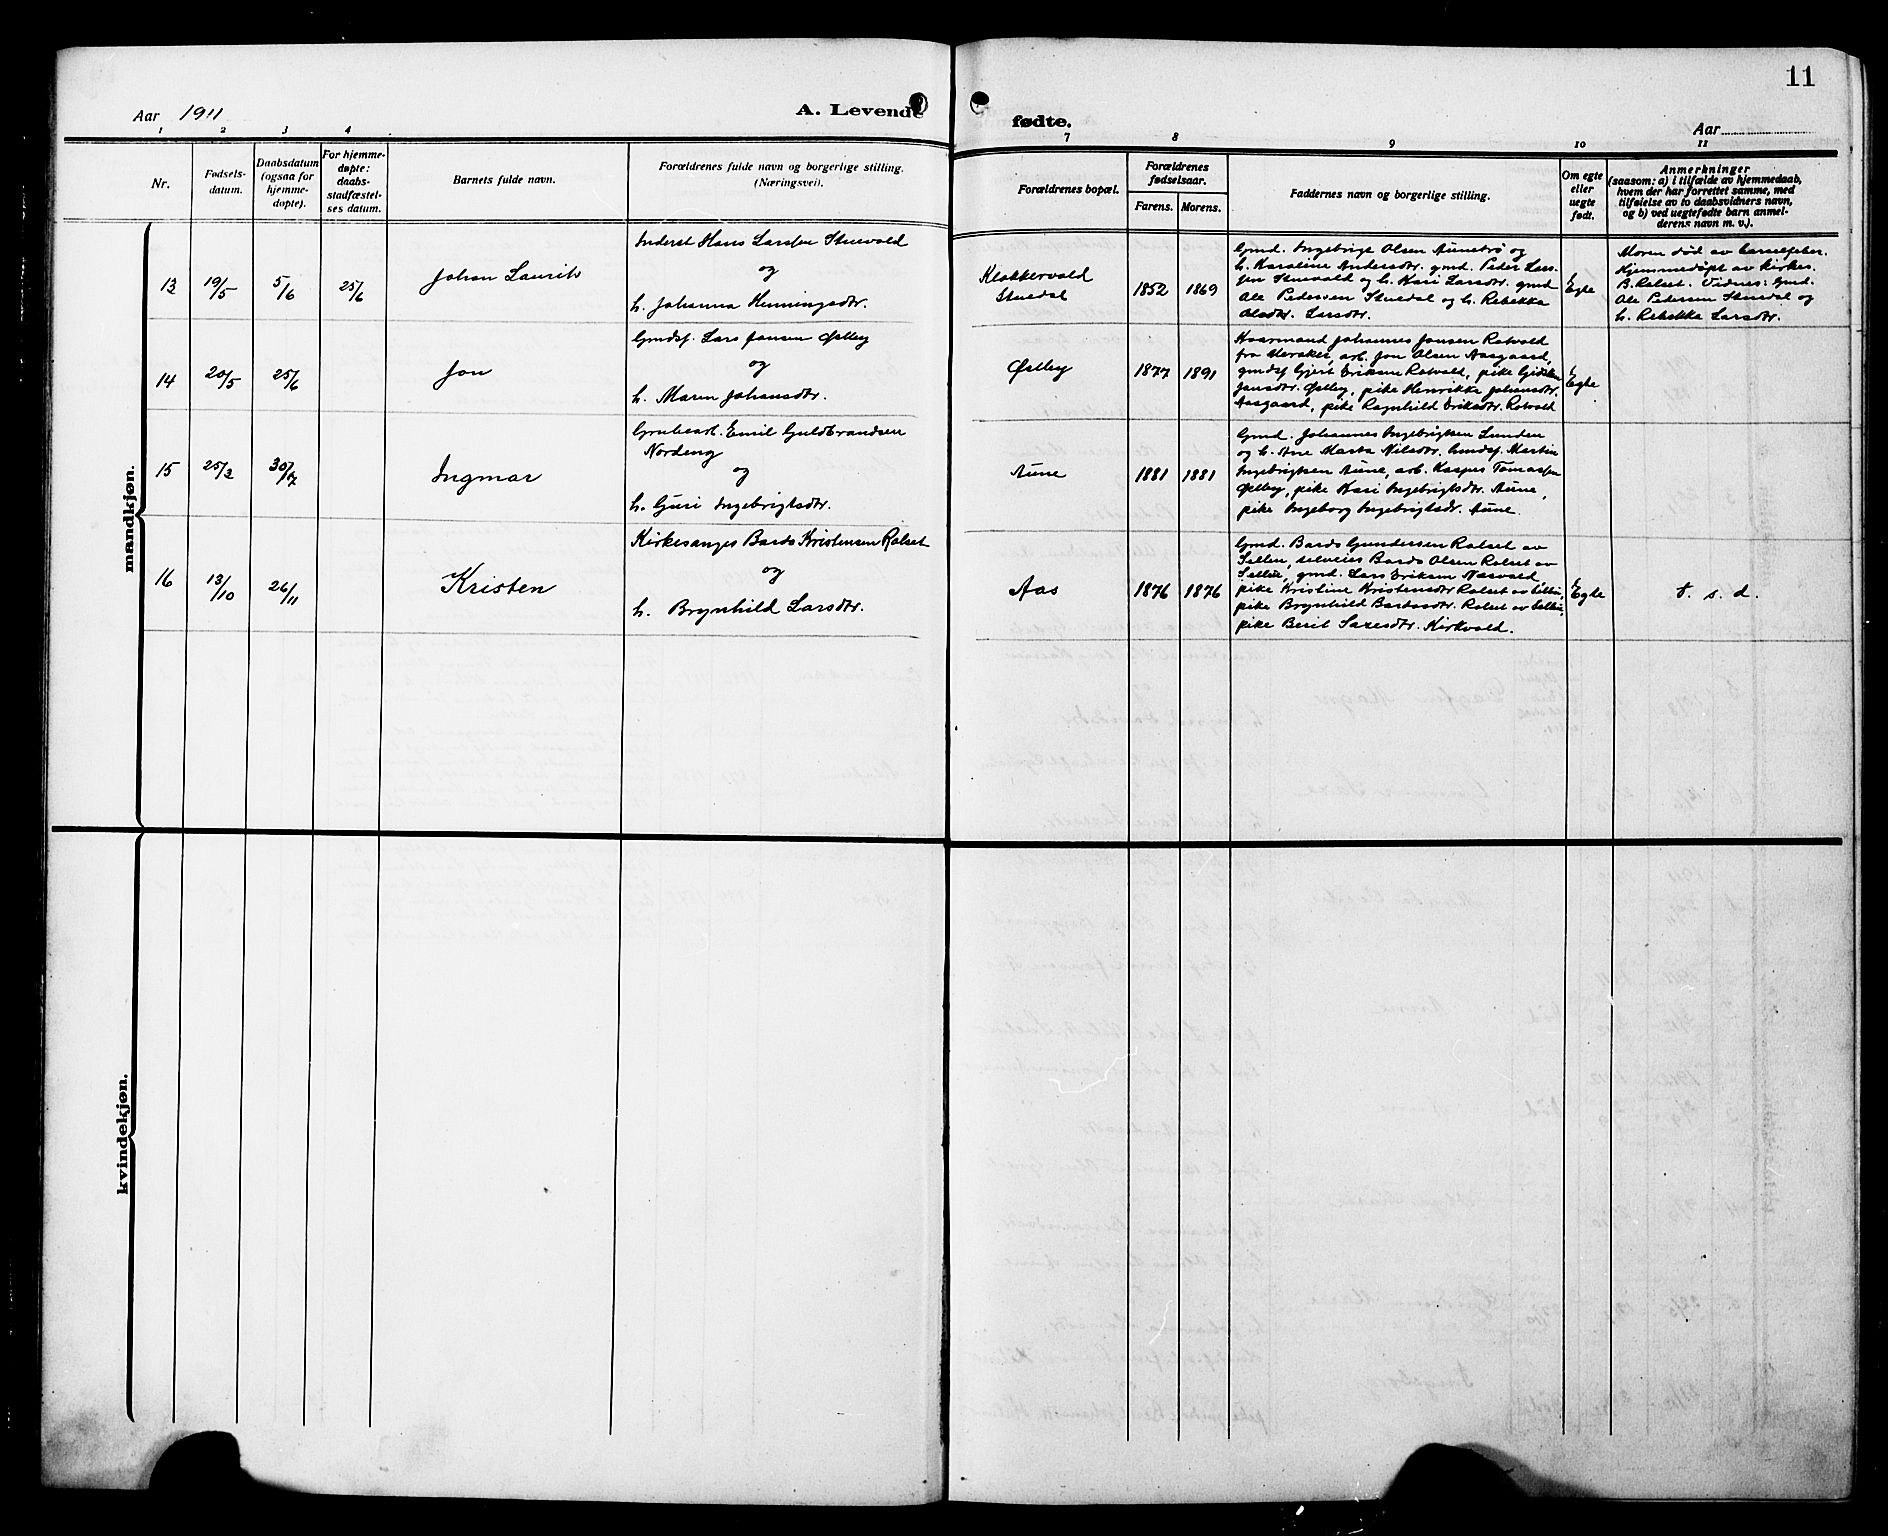 11
Aar 1911
A. Levende
fødte.
Aar
1
2
3
4
7
8
9
10
11
Nr.
Fødsels-
datum.
Daabsdatum
(ogsaa for
hjemme-
døpte).
For hjemme-
døpte:
daabs-
stadfæstel-
ses datum.
Barnets fulde navn.
Forældrenes fulde navn og borgerlige stilling.
(Næringsvei).
Forældrenes bopæl.
Forældrenes
fødselsaar.
Farens.
Morens.
Faddernes navn og borgerlige stilling.
Om egte
eller
uegte
født.
Anmerkninger
(saasom: a) i tilfælde av hjemmedaab,
hvem der har forrettet samme, med
tilføielse av to daabsvidners navn,
og b) ved uegtefødte barn anmel-
derens navn m. v.).
mandkjøn.
13
19/5
5/6
25/6
Johan Laurits
Inderst Hans Larssen Stuevold
og
h. Johanna Henningsdtr.
Klokkervold
Stuedal
1852
1869
Gmd. Ingebrigt Olsen Aunebrø og
h. Karoline Andersdtr. gmd. Peder Lars-
sen Stuevold og h. Kari Larsdtr. gmd
Ole Pedersen Stuedal og h. Rebekka
Larsdtr.
Egte
Moren død av barselfeber.
Hjemmedøpt av kirkes.
B. Rolset. Vidner: Gmd.
Ole Pedersen Stuedal og
h. Rebekka Larsdtr.
14
20/5
25/6
Jon
Gmdsf. Lars Jonsen Østby
og
h. Maren Johansdtr.
Østby
1877
1891
Kaarmand Johannes Jonsen Rotvold
fra Meraker, arb. Jon Olsen Aasgaard,
gmdsf Gjert Eriksen Rotvold, pike
Jonsdtr. Østby, pike Henrikke Johansdtr.
Aasgaard, pike Ragnhild Eriksdtr. Rotvold
Egte
15
25/3
30/7
Ingmar
Grubearb. Emil Guldbrandsen
Nordeng
og
h. Guri Ingebrigtsdtr.
Aune
1881
1881
Gmd. Johannes Ingebrigtsen Lunden
og h. Ane Marta Nilsdtr. Gmdsf. Martin
Ingebrigtsen Aune, arb. Kasper Tomassen
Østby, pike Kari Ingebrigtsdtr. Aune,
pike Ingeborg Ingebrigtsdr. Aune.
16
13/10
26/11
Kristen
Kirkesanger Bardo Kristensen Rolset
og
h. Brynhild Larsdtr.
Aas
1876
1876
Gmd. Bardo Gundersen Rolset av
Selbu, selveier Bardo Olsen Rolset av
Selbu, gmd. Lars Eriksen Næsvold,
pike Kristine Kristensdtr Rolset av Selbu,
pike Brynhild Bardosdtr. Rolset av Selbu,
pike Beret Larsdtr. Kirkvold.
Egte
t. s. d.
kvindekjøn.